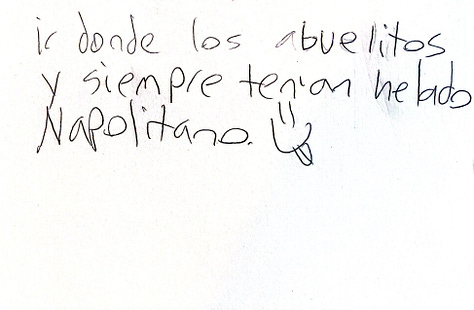 ir donde los abuelitos
y siempre tenian helado
Napolitano.